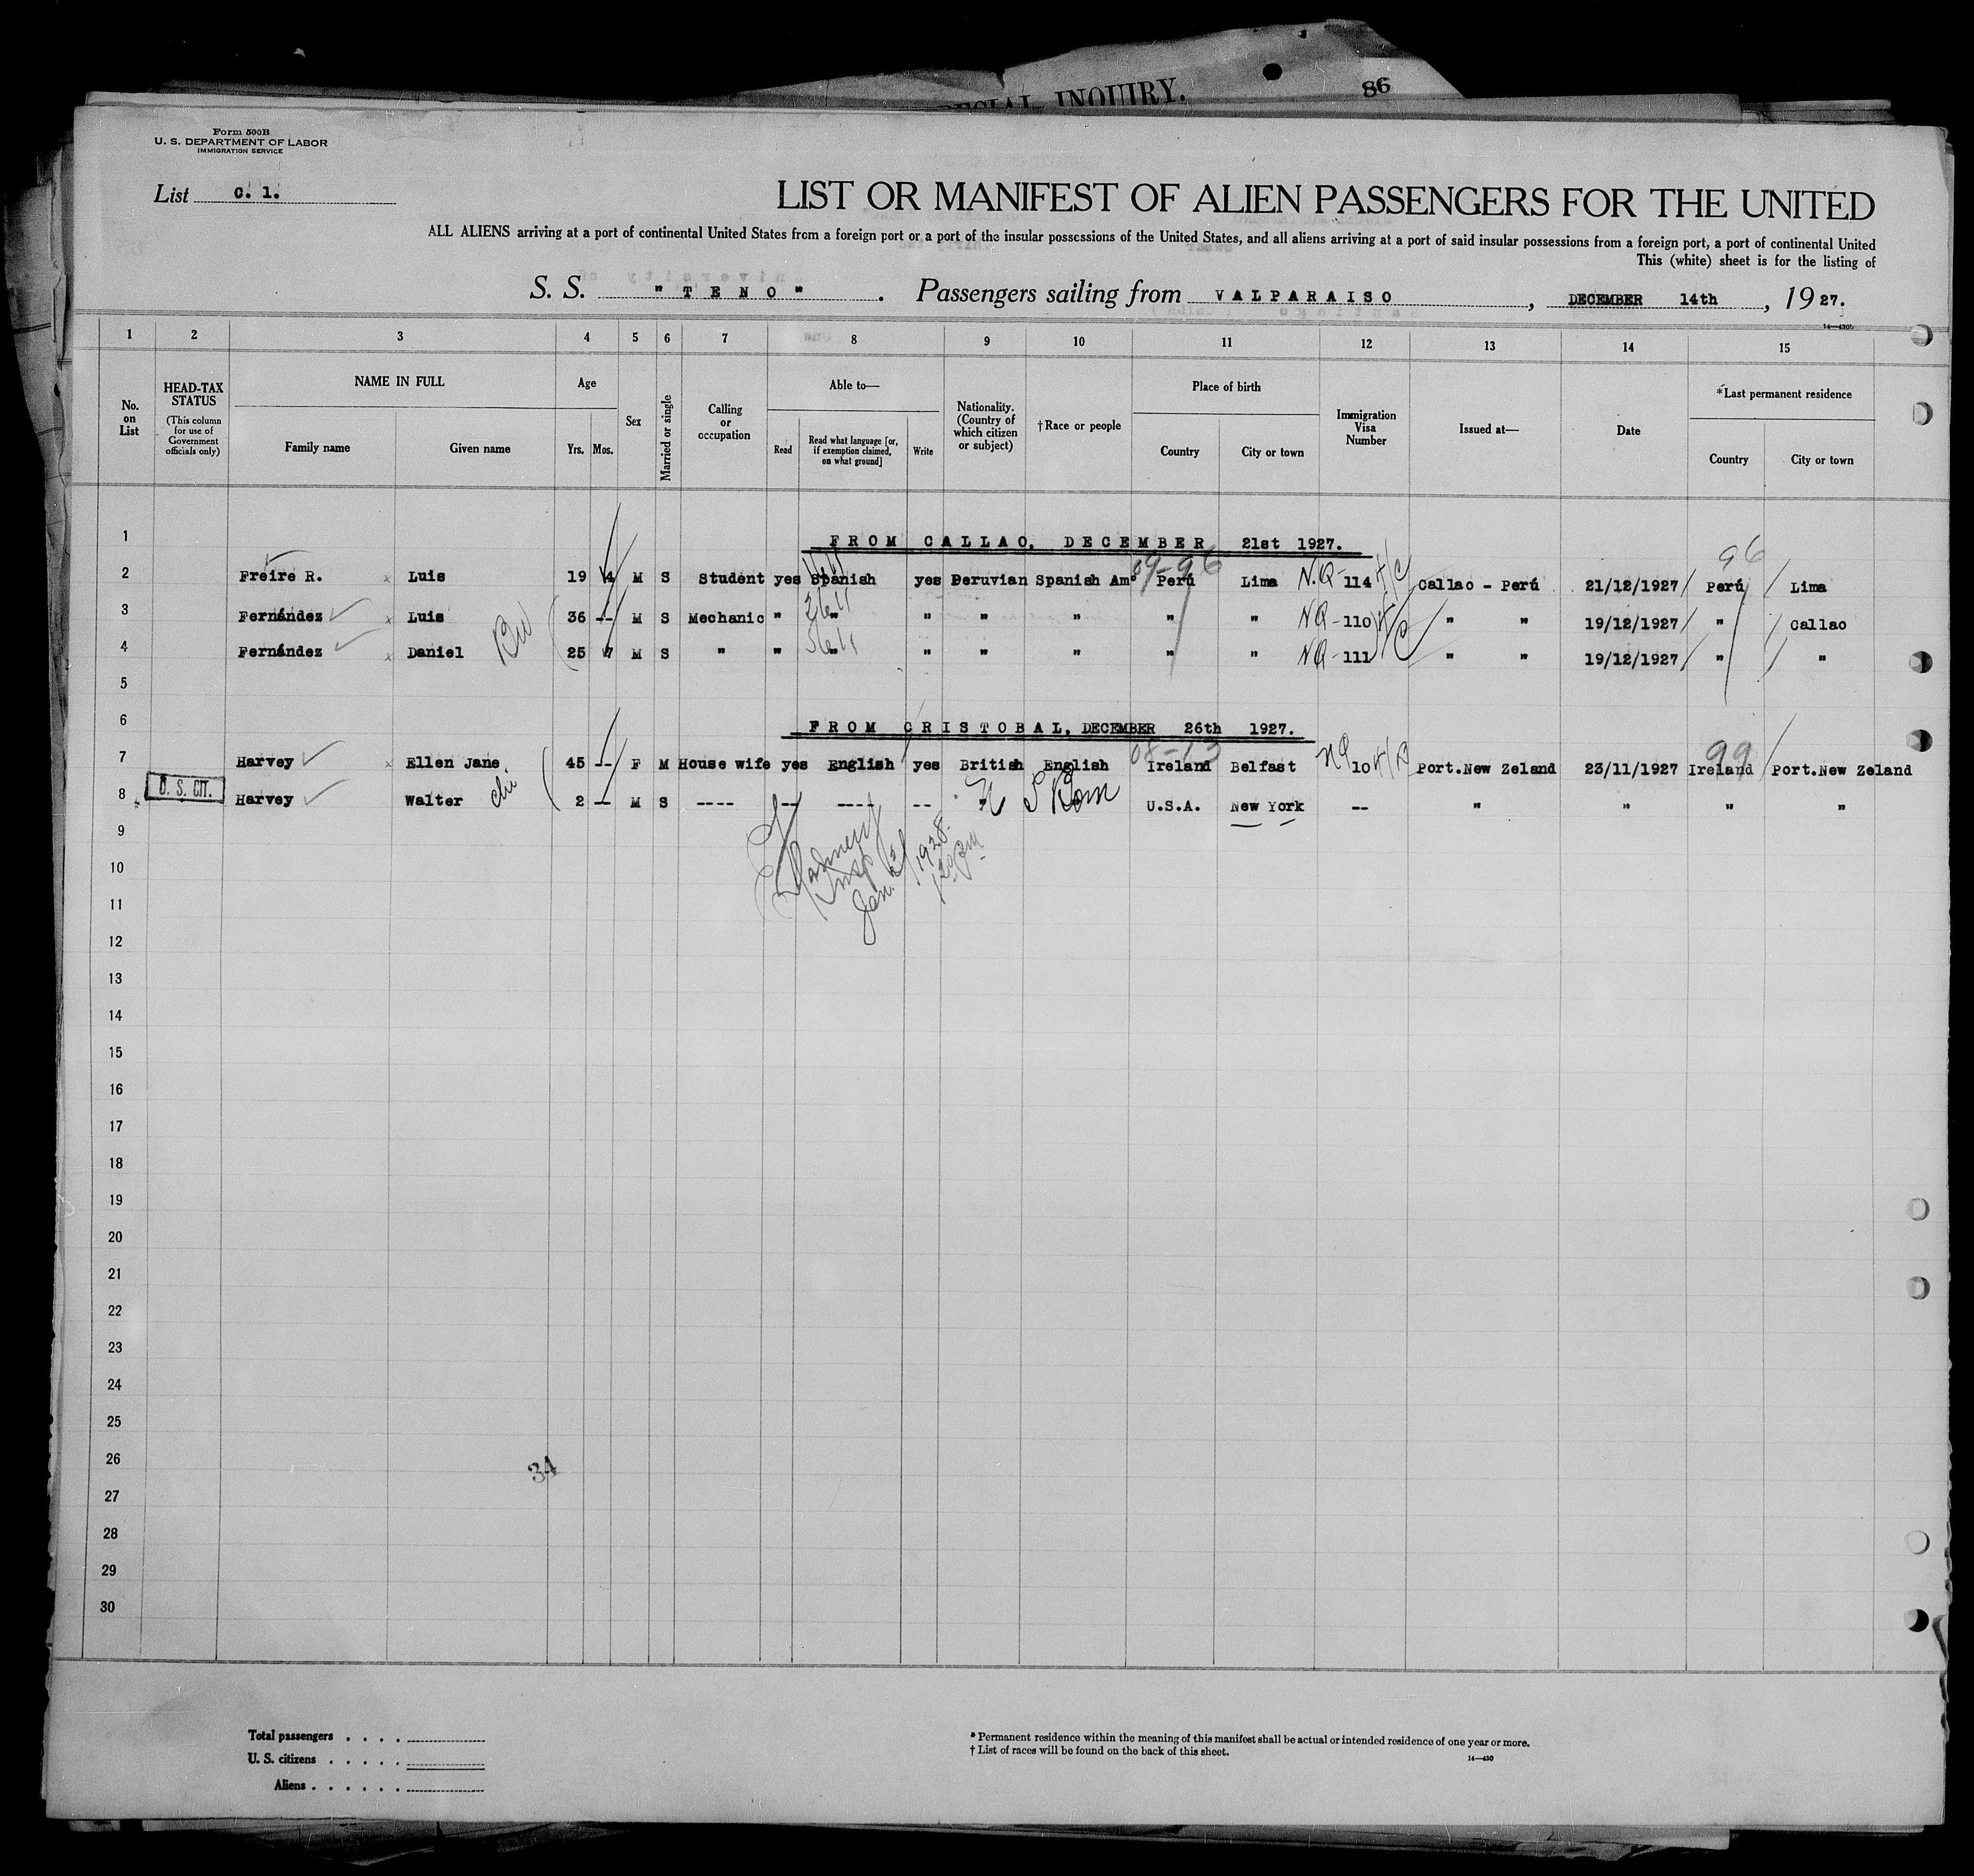 SPECIAL INQUIRY.
86
Form 500B
U. S. DEPARTMENT OF LABOR
IMMIGRATION SERVICE
List C. 1.
LIST OR MANIFEST OF ALIEN PASSENGERS FOR THE UNITED
ALL ALIENS arriving at a port of continental United States from a foreign port or a port of the insular possessions of the United States, and all aliens arriving at a port of said insular possessions from a foreign port, a port of continental United
This (white) sheet is for the listing of
S. S. "TENO". Passengers sailing from VALPARAISO, DECEMBER 14th, 1927.
14—430b
1 2 3 4 5 6 7 8 9 10 11 12 13 14 15
No. on List
HEAD-TAX STATUS (This column for use of Government officials only)
NAME IN FULL
Family name Given name
Age
Yrs. Mos.
Sex
Married or single
Calling or occupation
Able to—
Read
Read what language [or, if exemption claimed, on what ground]
Write
Nationality. (Country of which citizen or subject)
†Race or people
Place of birth
Country City or town
Immigration Visa Number
Issued at—
Date
*Last permanent residence
Country City or town
1 FROM CALLAO, DECEMBER 21st 1927.
96
2 Freire R. x Luis 19 4 M S Student yes Spanish yes Peruvian Spanish Amº Perú Lima N.Q- 114 Callao - Perú 21/12/1927 Perú Lima
3 Fernández x Luis 36 -- M S Mechanic " " " " " " " NQ- 110 " " 19/12/1927 " Callao
4 Fernández x Daniel 25 7 M S " " " " " " " " NQ- 111 " " 19/12/1927 " "
5
6 FROM CRISTOBAL, DECEMBER 26th 1927.
99
7 Harvey x Ellen Jane 45 -- F M House wife yes English yes British English Ireland Belfast NQ 10 Port.New Zeland 23/11/1927 Ireland Port.New Zeland
8 U. S. CIT. Harvey Walter 2 -- M S ---- -- ---- -- U S Born U.S.A. New York -- " " " "
9
10
Insp
Jan. 2/1928.
11
12
13
14
15
16
17
18
19
20
21
22
23
24
25
26
34
27
28
29
30
Total passengers . . . .
U. S. citizens . . . . .
Aliens . . . . . .
* Permanent residence within the meaning of this manifest shall be actual or intended residence of one year or more.
† List of races will be found on the back of this sheet.
14—430